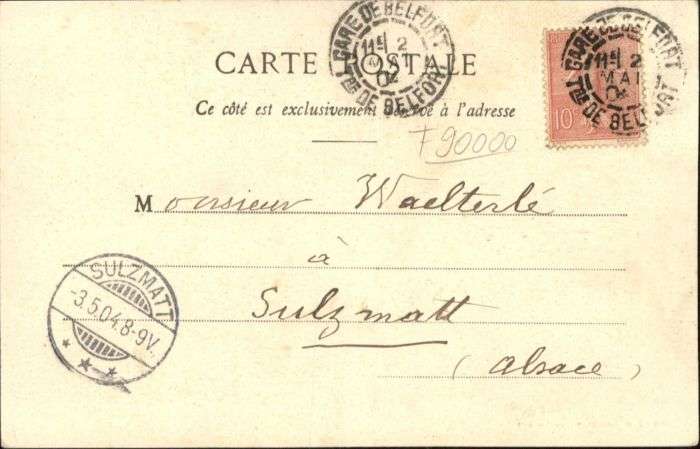 GARE DE BELFORT
11E 2
MAI
04
TRE DE BELFORT
GARE DE BELFORT
11E 2
MAI
04
TRE DE BELFORT
10
CARTE POSTALE
Ce côté est exclusivement réservé à l'adresse
F90000
Monsieur Waelterlé
à
Sulzmatt
(Alsace)
SULZMATT
-3.5.04.8-9V.